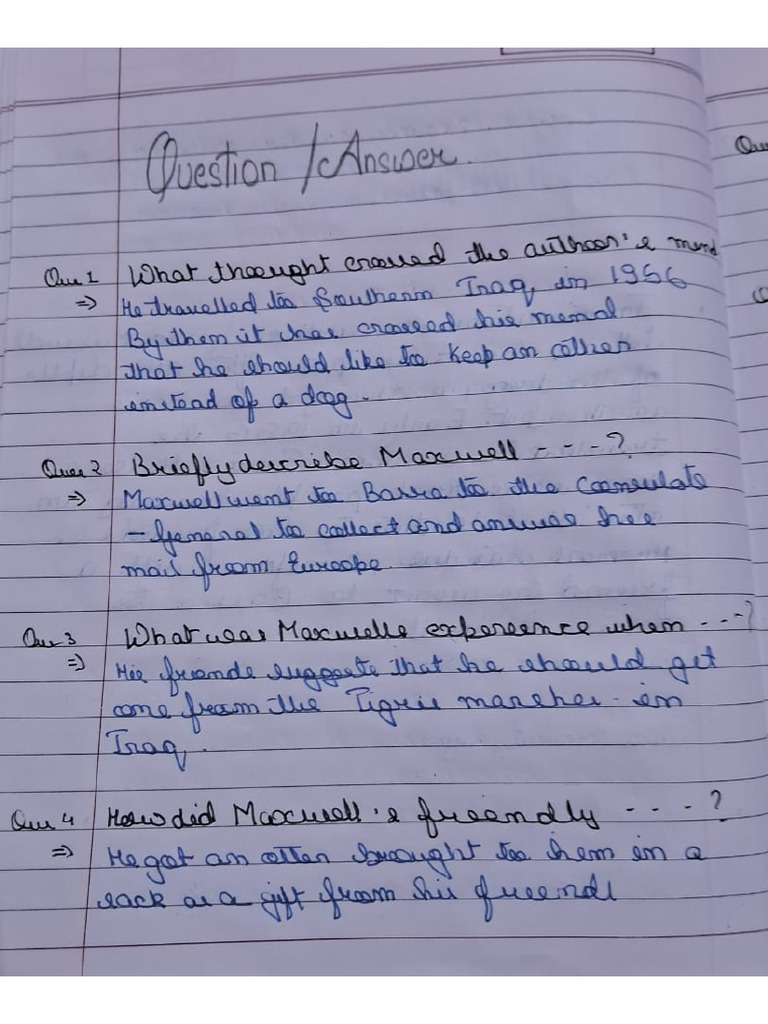 Question / Answer
Que 1 What thought crossed the author's mind
⇒ He travelled to Southern Iraq, in 1956
By then it has crossed his mend
that he should like to keep an otter
instead of a dog.
Ques 2 Briefly describe Maxwell - - - ?
⇒ Maxwell went to Basra to the Consulate
- General to collect and answer hee
mail from Europe.
Que 3 What was Maxwells expereence when - - - ?
⇒ His friends suggests that he should get
one from the Tigris marshes in
Iraq.
Que 4 How did Maxwell's freendly - - - - ?
⇒ He got an otter brought to hem in a
sack as a gift from his freends
Que